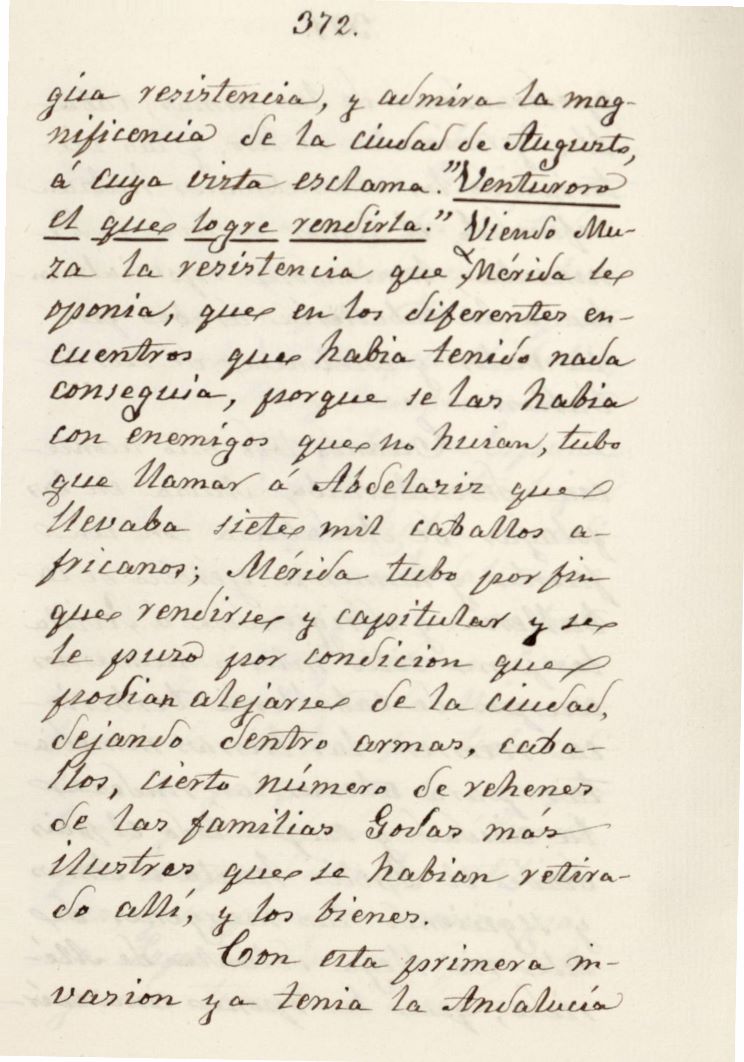 372.
gua resistencia, y admira la mag-
nificencia de la ciudad de Augusto,
á cuya vista esclama. "Venturoso
el que logre rendirla." Viendo Mu-
za la resistencia que Mérida le
oponia, que en los diferentes en-
cuentros que habia tenido nada
conseguia, porque se las habia
con enemigos que no huian, tubo
que llamar á Abdelaziz que
llevaba siete mil caballos a-
fricanos; Mérida tubo por fin
que rendirse y capitular y se
le puso por condicion que
podian alejarse de la ciudad,
dejando dentro armas, caba-
llos, cierto número de rehenes
de las familias Godas más
ilustres que se habian retira-
do allí, y los bienes.
Con esta primera in-
vasion ya tenia la Andalucía